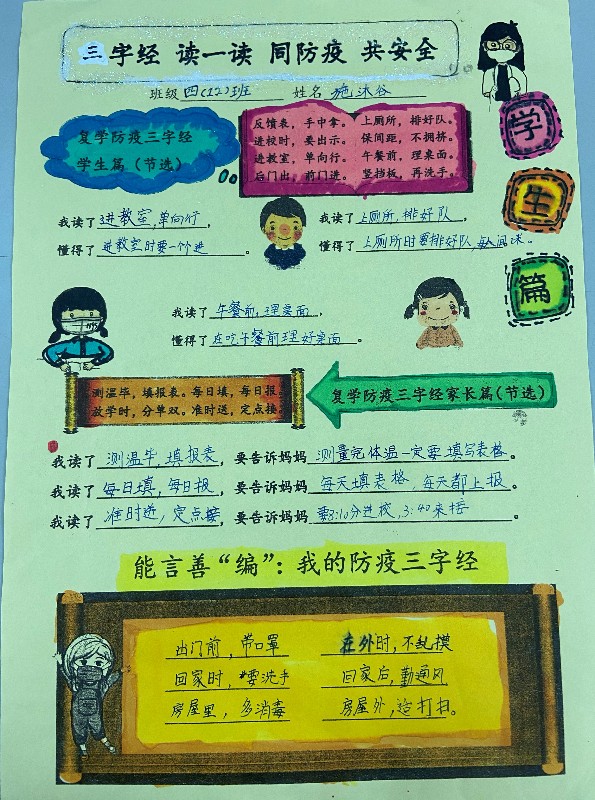 三字经 读一读 同防疫 共安全
班级 四(12)班 姓名 施沐谷
学生篇
复学防疫三字经
学生篇（节选）
反馈表，手中拿。上厕所，排好队。
进校时，要出示。保间距，不拥挤。
进教室，单向行。午餐前，理桌面。
后门出，前门进。竖挡板，再洗手。
我读了 进教室,单向行，
懂得了 进教室时要一个进。
我读了 上厕所,排好队，
懂得了 上厕所时要排好队,
我读了 午餐前,理桌面，
懂得了 在吃午餐前理好桌面。
测温毕，填报表。每日填，每日报。
放学时，分单双。准时送，定点接。
复学防疫三字经家长篇（节选）
我读了 测温毕,填报表，要告诉妈妈 测量完体温一定要填写表格。
我读了 每日填,每日报，要告诉妈妈 每天填表格,每天都上报。
我读了 准时送,定点接，要告诉妈妈 要8:10分进校,3:40来接。
能言善“编”：我的防疫三字经
出门前,带口罩 在外时,不乱摸
回家时,要洗手 回家后,勤通风
房屋里,多消毒 房屋外,打扫。